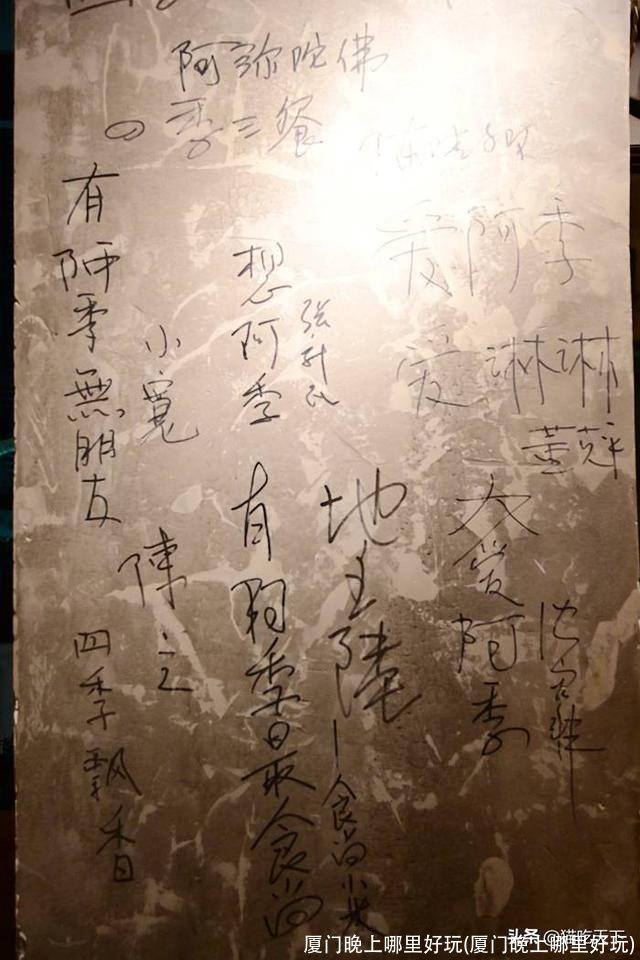 阿弥陀佛
四季三餐
爱阿季
爱琳琳
大爱阿季
地主陸
食尚小米
想阿季
有阿季最食尚
小寬
陳立
有阿季無朋友
四季飄香
头条@猫吃天下
厦门晚上哪里好玩(厦门晚上哪里好玩)